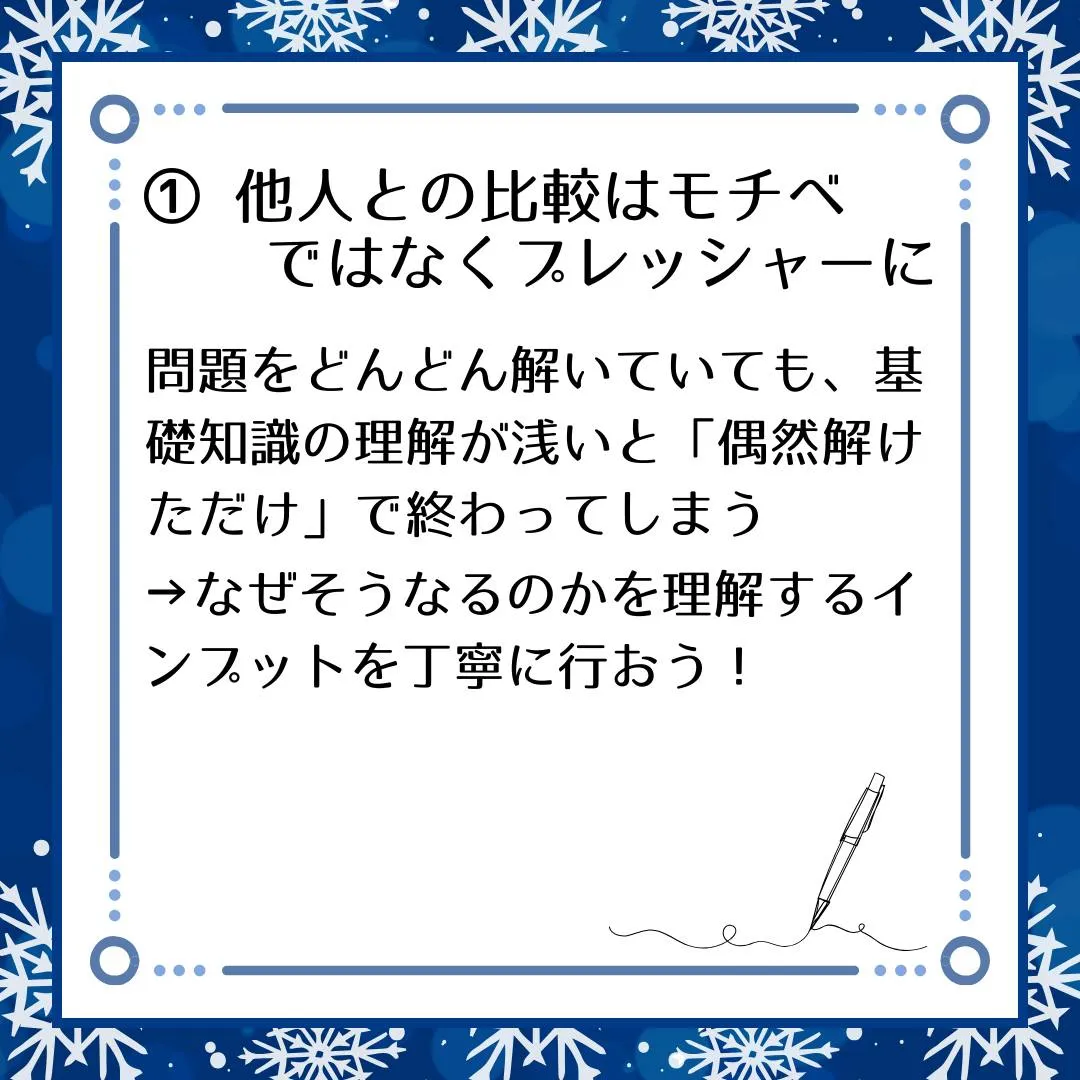 ① 他人との比較はモチベ
ではなくプレッシャーに
問題をどんどん解いていても、基
礎知識の理解が浅いと「偶然解け
ただけ」で終わってしまう
→なぜそうなるのかを理解するイ
ンプットを丁寧に行おう！